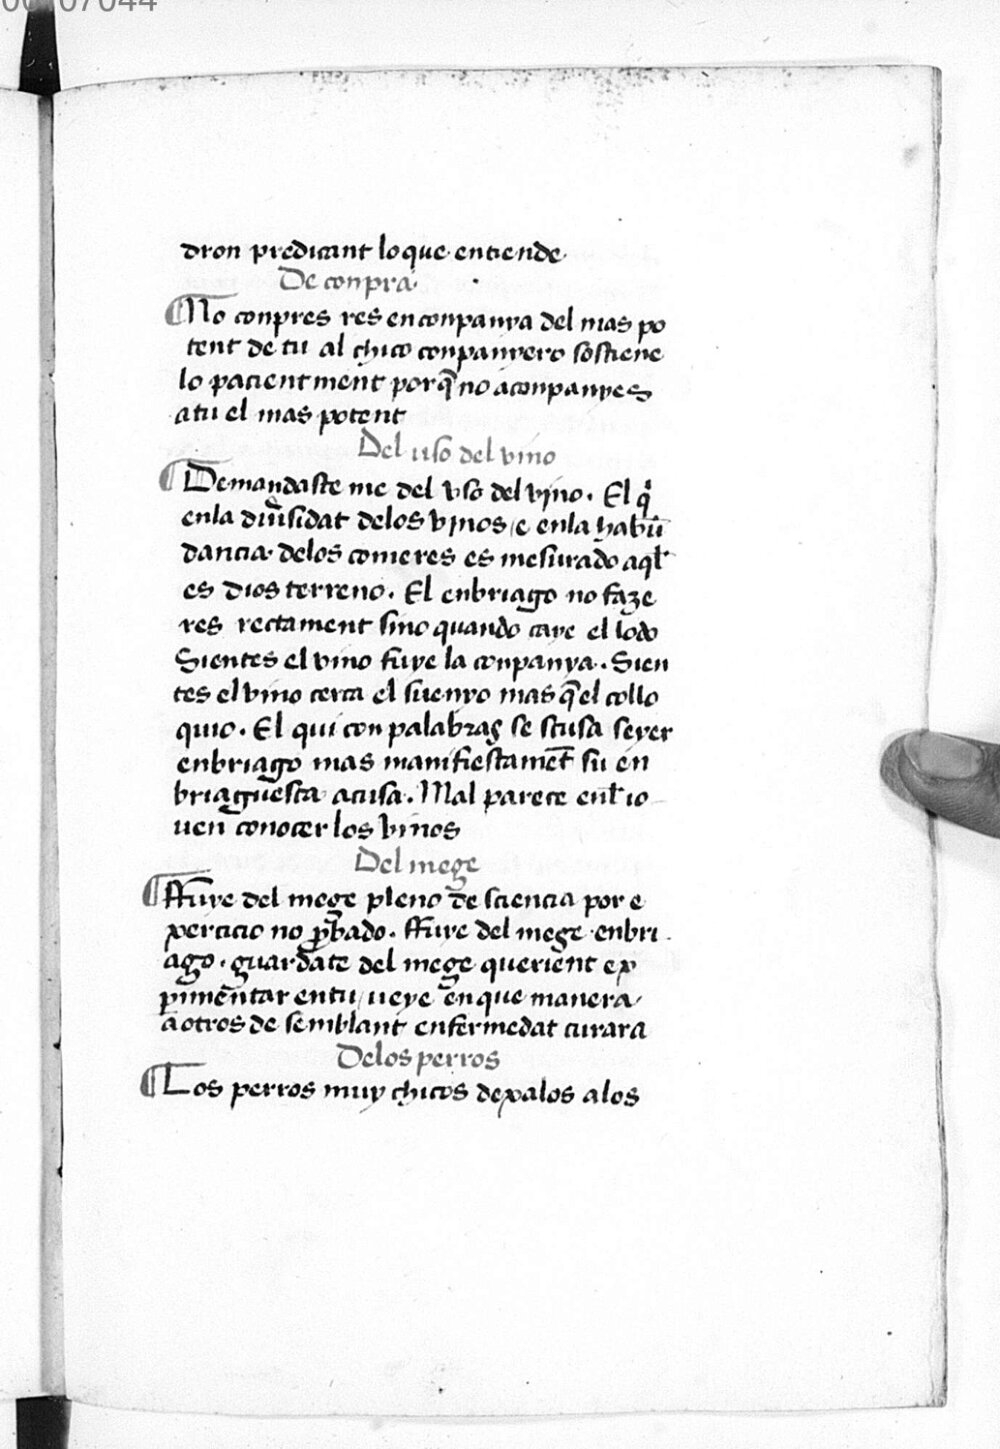 dron predicant lo que entiende
De conpra
¶ No conpres res en conpanya del mas po
tent de tu al chico conpanyero sostiene
lo pacientment porq̃ no aconpanyes
a tu el mas potent
Del uso del vino
¶ Demandaste me del vso del vjno. El qͥ
en la diũsidat de los vjnos e en la habũ
dancia delos comeres es mesurado aql̃
es dios terreno. El enbriago no faze
res rectament sino quando caye el lodo
Sientes el vino fuye la conpanya. Sien
tes el vino cerca el suenyo mas q̃ el collo
quio. El qui con palabras se scusa seyer
enbriago mas manifiestamẽt su en
briaguesca acusa. Mal parece enl̃ io
uen conocer los vinos
Del mege
¶ ffuye del mege pleno de sciencia por e
xercicio no p̃bado. ffuye del mege enbri
ago. guardate del mege querient ex
ꝑimentar en tu ueye en que manera
a otros de semblant enfermedat curara
Delos perros
¶ Los perros muy chicos dexalos a los